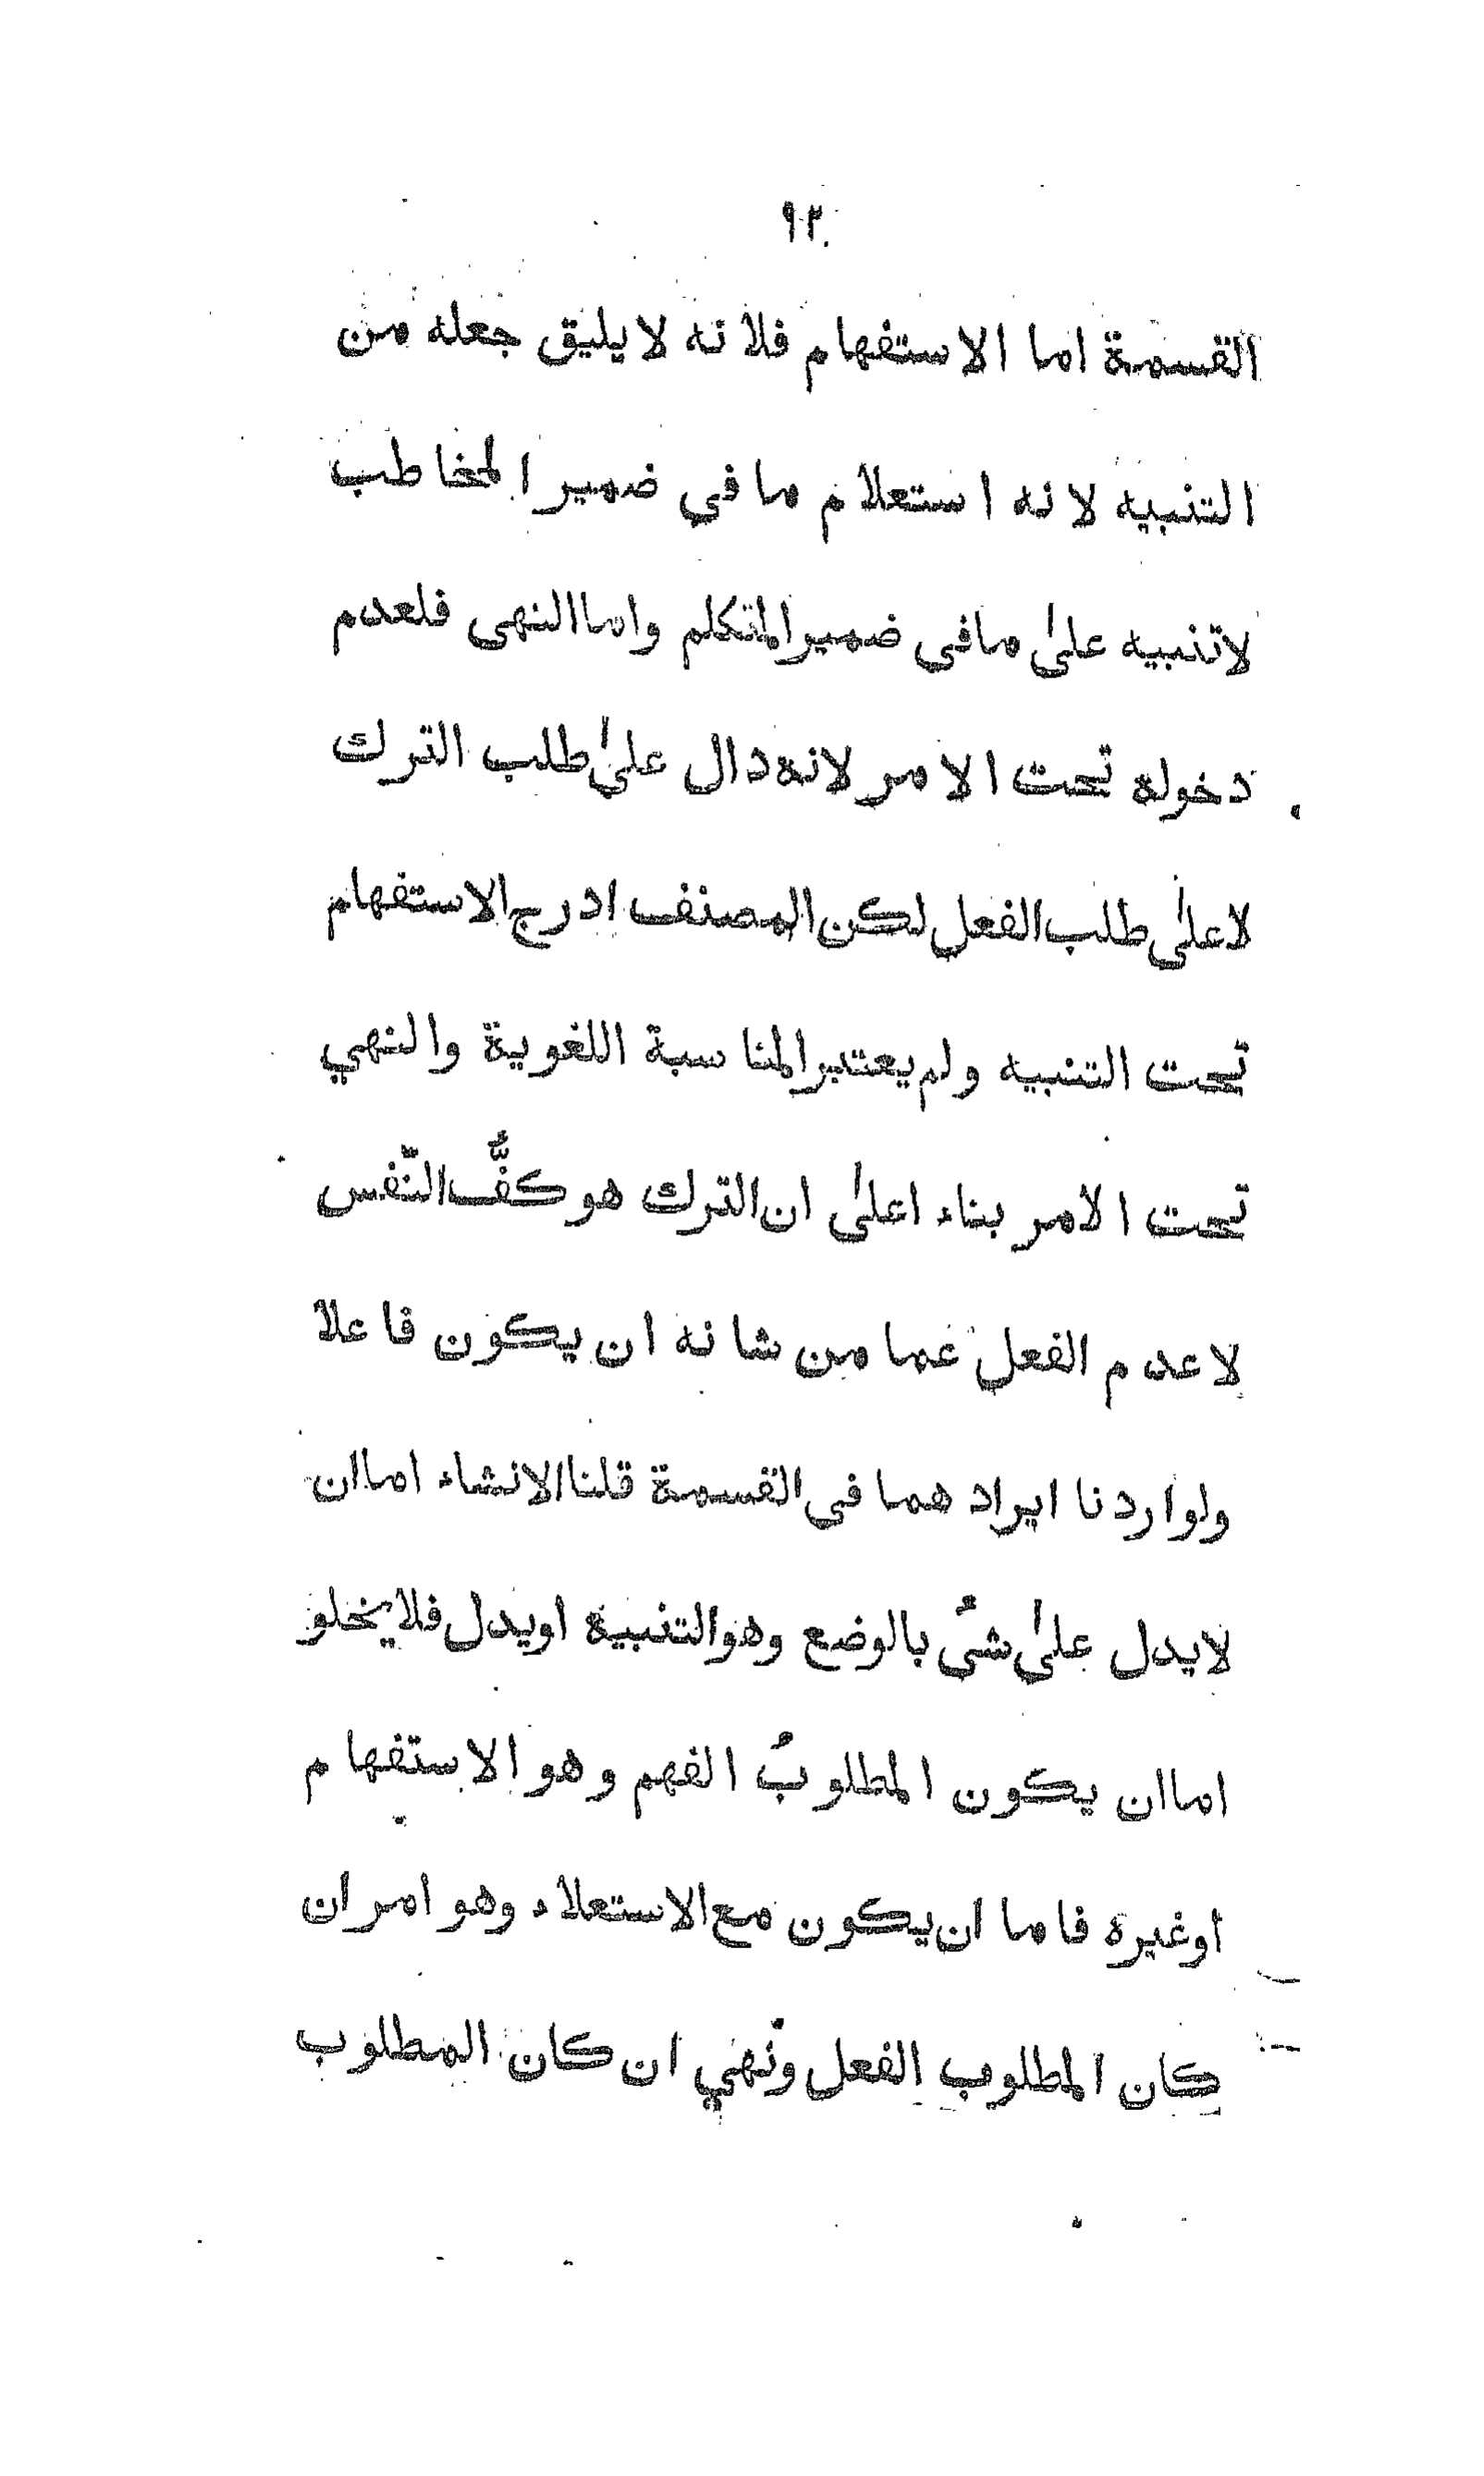 ٩٢
القسمة اما الاستفهام فلانه لا يليق جعله من
التنبيه لانه استعلام ما في ضمير المخاطب
لاتنبيه على ما فى ضمير المتكلم واما النهى فلعدم
دخوله تحت الامر لانه دال على طلب الترك
لا على طلب الفعل لكن المصنف ادرج الاستفهام
تحت التنبيه ولم يعتبر المناسبة اللغوية والنهي
تحت الامر بناء اعلى ان الترك هو كفُّ النّفس
لا عدم الفعل عما من شانه ان يكون فاعلا
ولو اردنا ايرادهما فى القسمة قلنا الانشاء اما ان
لايدل على شئُ بالوضع وهو التنبية اويدل فلا يخلو
اما ان يكون المطلوبُ الفهم وهو الاستفهام
اوغيره فاما ان يكون مع الاستعلاء وهو امر ان
كان المطلوب الفعل ونهي ان كان المطلوب